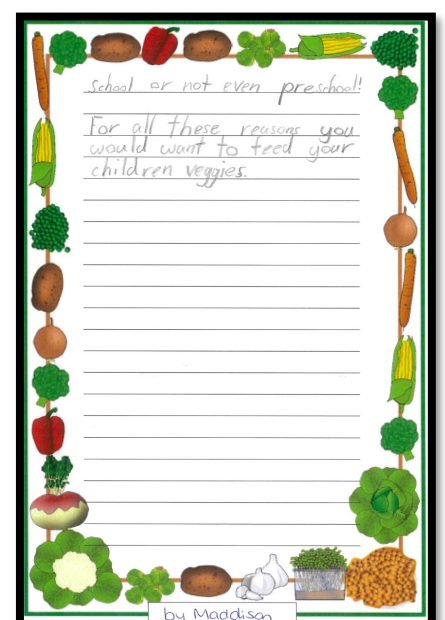 school or not even preschool!
For all these reasons you
would want to feed your
children veggies.
by Maddison